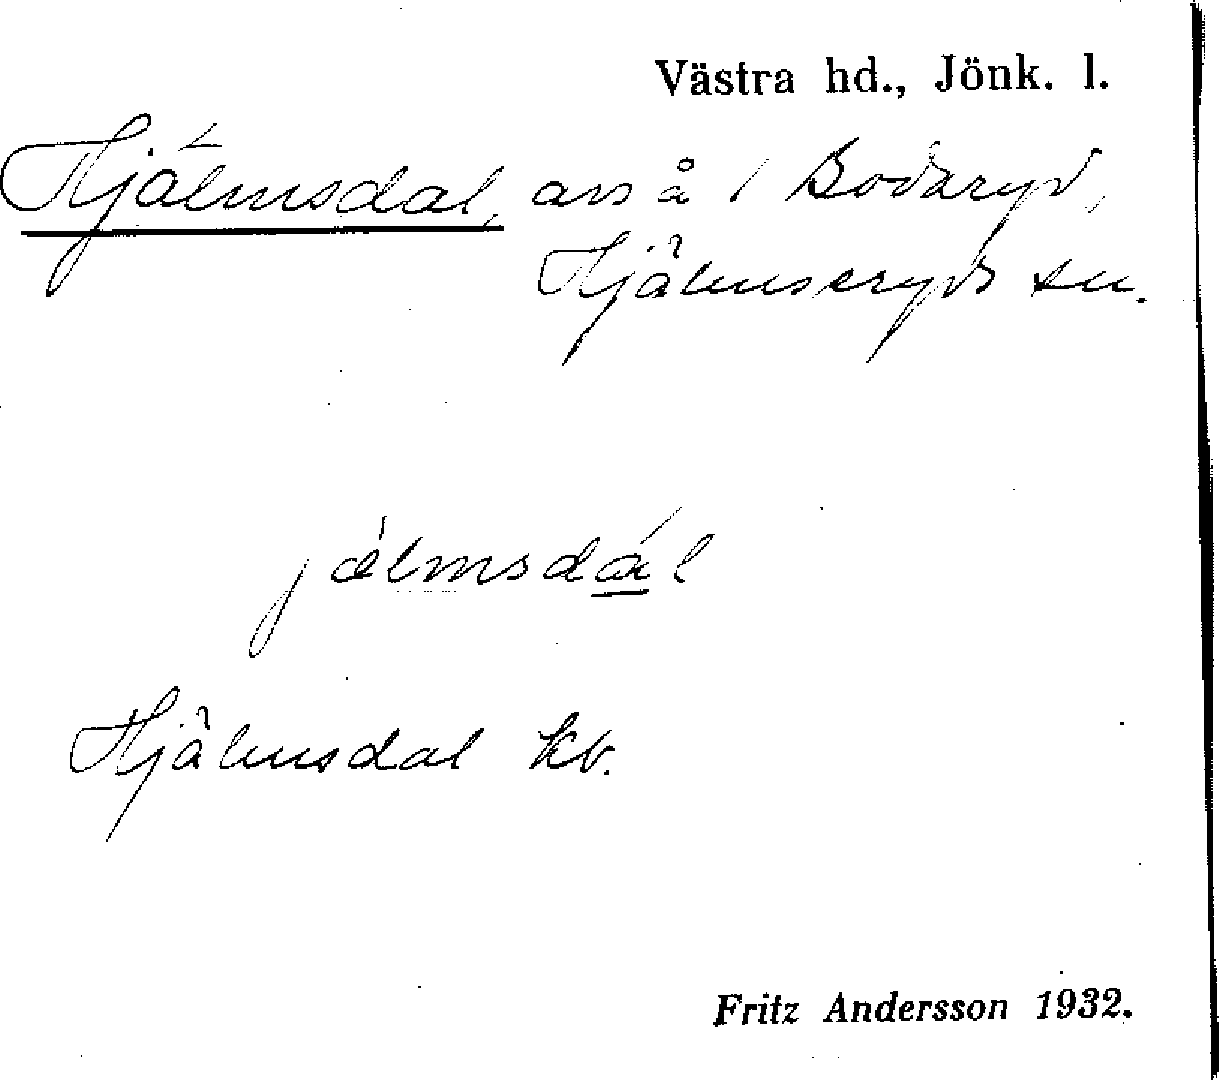 Västra hd., Jönk. l.
Hjälmsdal, avs å Bodaryd,
Hjälmseryds sn.
jælmsdál
Hjälmsdal kb.
Fritz Andersson 1932.